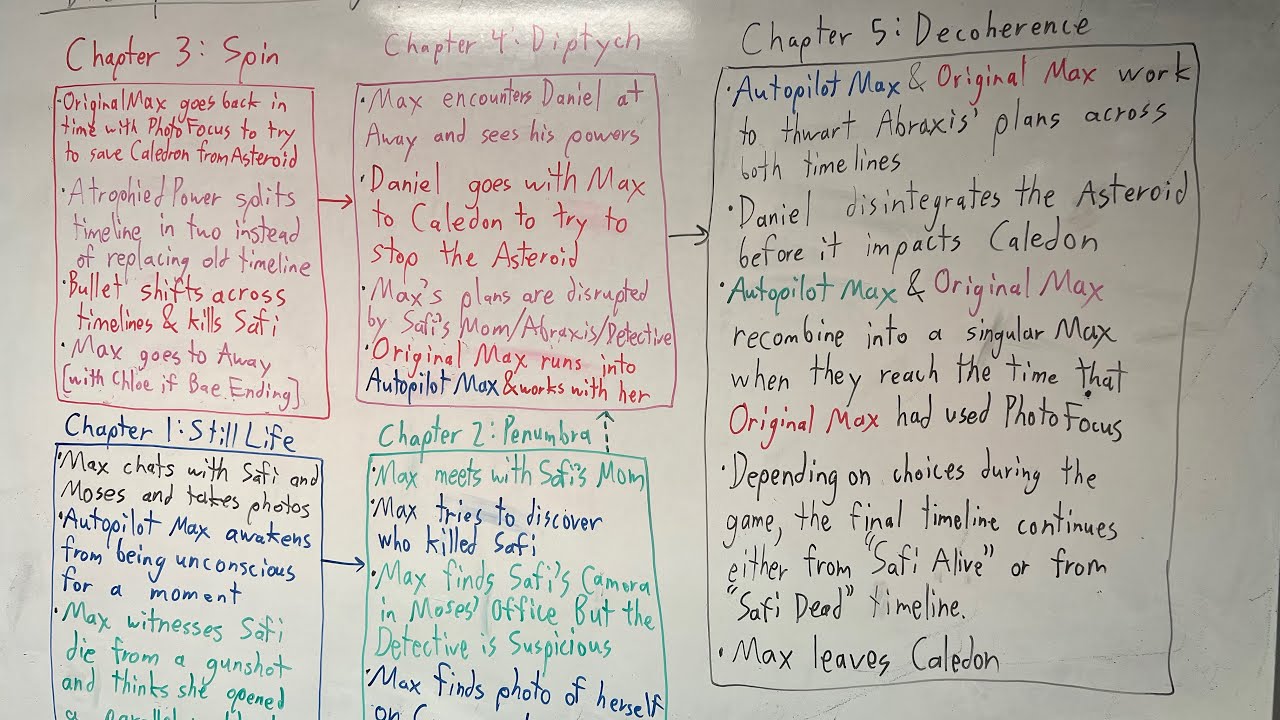 Chapter 3: Spin
·Original Max goes back in
time with PhotoFocus to try
to save Caledron from Asteroid
·Atrophied Power splits
timeline in two instead
of replacing old timeline
·Bullet shifts across
timelines & kills Safi
·Max goes to Away
[with Chloe if Bae Ending]
Chapter 4: Diptych
·Max encounters Daniel at
Away and sees his powers
·Daniel goes with Max
to Caledon to try to
stop the Asteroid
·Max's plans are disrupted
by Safi's Mom/Abraxis/Detective
·Original Max runs into
Autopilot Max & works with her
Chapter 5: Decoherence
·Autopilot Max & Original Max work
to thwart Abraxis' plans across
both timelines
·Daniel disintegrates the Asteroid
before it impacts Caledon
·Autopilot Max & Original Max
recombine into a singular Max
when they reach the time that
Original Max had used PhotoFocus
·Depending on choices during the
game, the final timeline continues
either from "Safi Alive" or from
"Safi Dead" timeline.
·Max leaves Caledon
Chapter 1: Still Life
·Max chats with Safi and
Moses and takes photos
·Autopilot Max awakens
from being unconscious
for a moment
·Max witnesses Safi
die from a gunshot
and thinks she opened
a parallel
Chapter 2: Penumbra
·Max meets with Safi's Mom
·Max tries to discover
who killed Safi
·Max finds Safi's Camera
in Moses' Office But the
Detective is Suspicious
·Max finds photo of herself
on